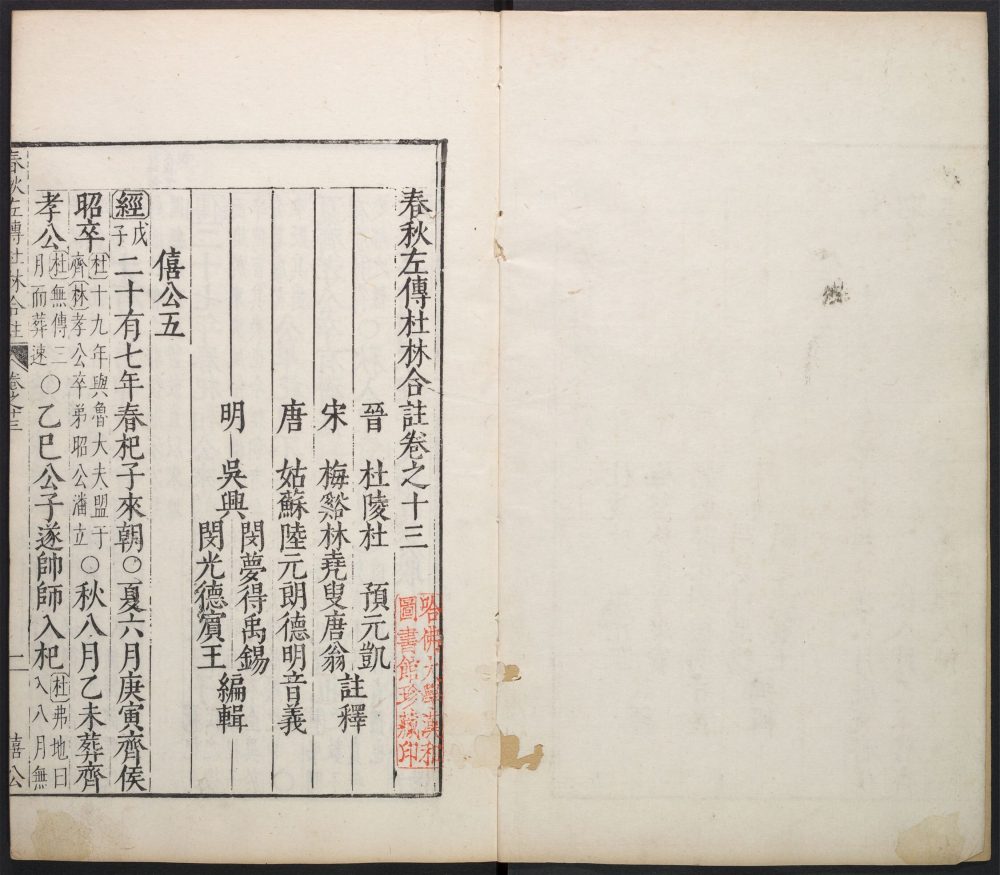 春秋左傳杜林合註卷之十三
晉 杜陵杜 預元凱
宋 梅谿林堯叟唐翁
註釋
唐 姑蘇陸元朗德明音義
明 吳興
閔夢得禹錫
閔光德賓王
編輯
僖公五
經戊子二十有七年春杞子來朝○夏六月庚寅齊侯
昭卒杜十九年與魯大夫盟于齊林孝公卒弟昭公潘立○秋八月乙未葬齊
孝公杜無傳三月而葬速○乙巳公子遂帥師入杞杜弗地曰入八月無
春秋左傳杜林合註 卷之十三 一 僖公
哈佛大學漢和
圖書館珍藏印